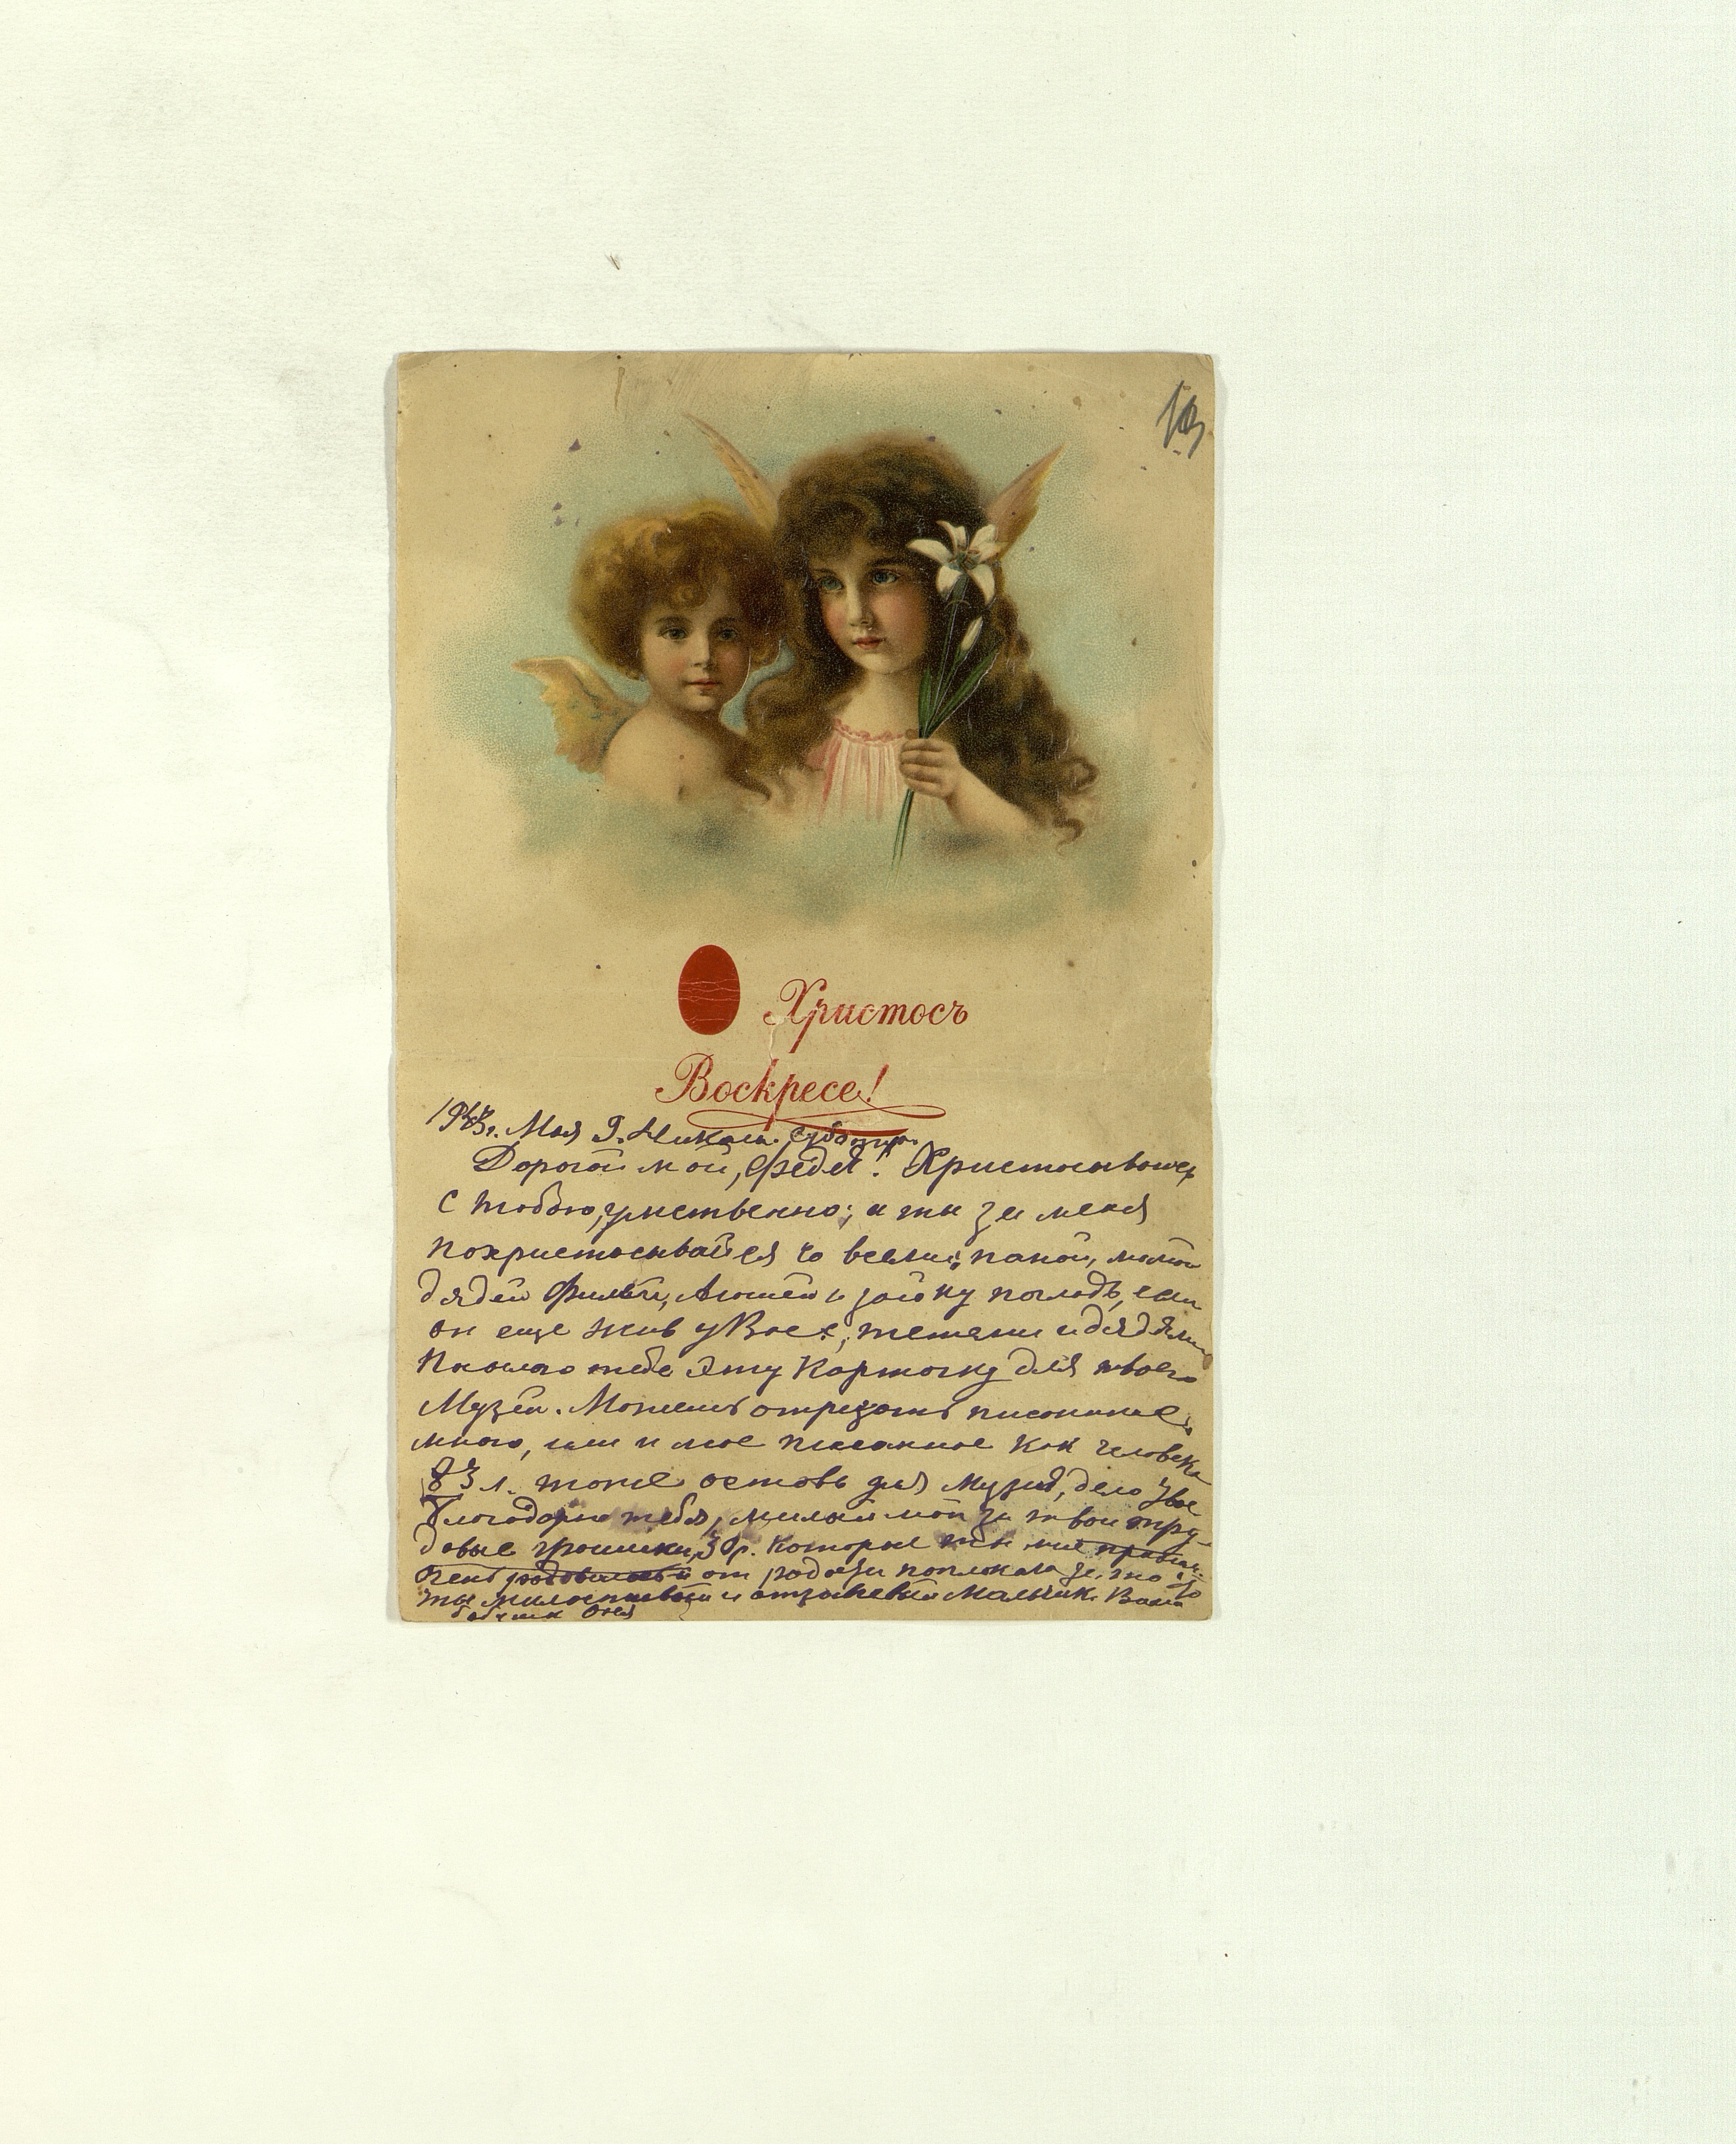 Христосъ
Воскресе!
Мая 9. Никол. Суббота.
Дорогой мой, Федя! Христосываюсь
с тобою, умственно; а ты за меня
похристосывайся со всеми; папой, мамой
дядей Филей, Люшей и зайку погладь, если
он еще жив у Вас, тетями и дядями
Посылаю тебе эту карточку для твоего
Музея. Можешь отрезать писанное
мною, или и мое писанное как человека
83 л. тоже оставь для Музея, дело твое
Благодарю тебя, милый мой за твои тру-
довые грошики, 30 р. которые ты мне
Очень от радости поплакала за, что
ты милостивый и отзывчивый Мальчик. Ваша
бабушка Оля